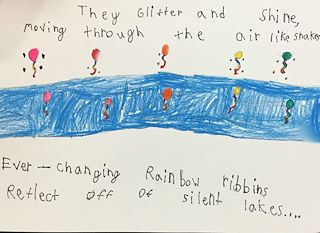 They Glitter and Shine,
moving through the air like snakes
Ever-changing Rainbow ribbins
Reflect off of silent lakes....